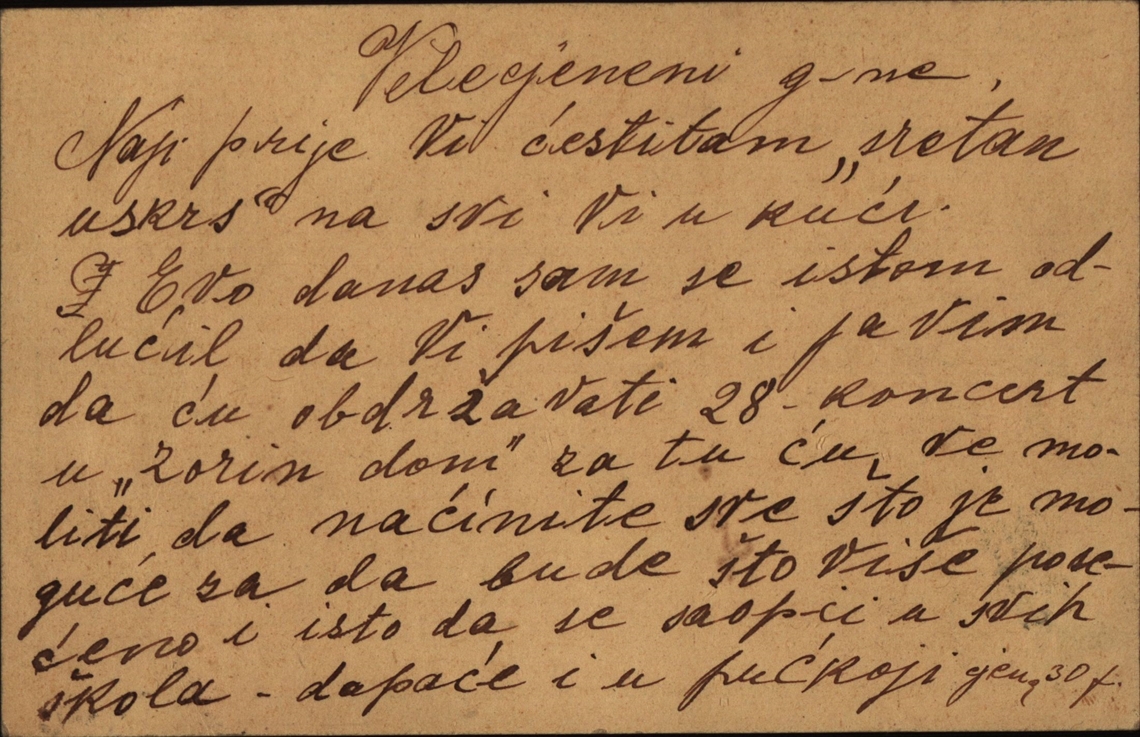 Velecjeneni g-ne,
Naj prije Vi ćestitam „sretan
uskrs" na svi Vi u kući.
Evo danas sam se istom od-
lućil da Vi pišem i javim
da ću obdržavati 28- koncert
u „zorin dom" za tu ću ve mo-
liti da naćinite sve što je mo-
guće za da bude što više pose-
ćeno i isto da se saopći u svih
škola - dapaće i u pućkoji cjenu 30 f.